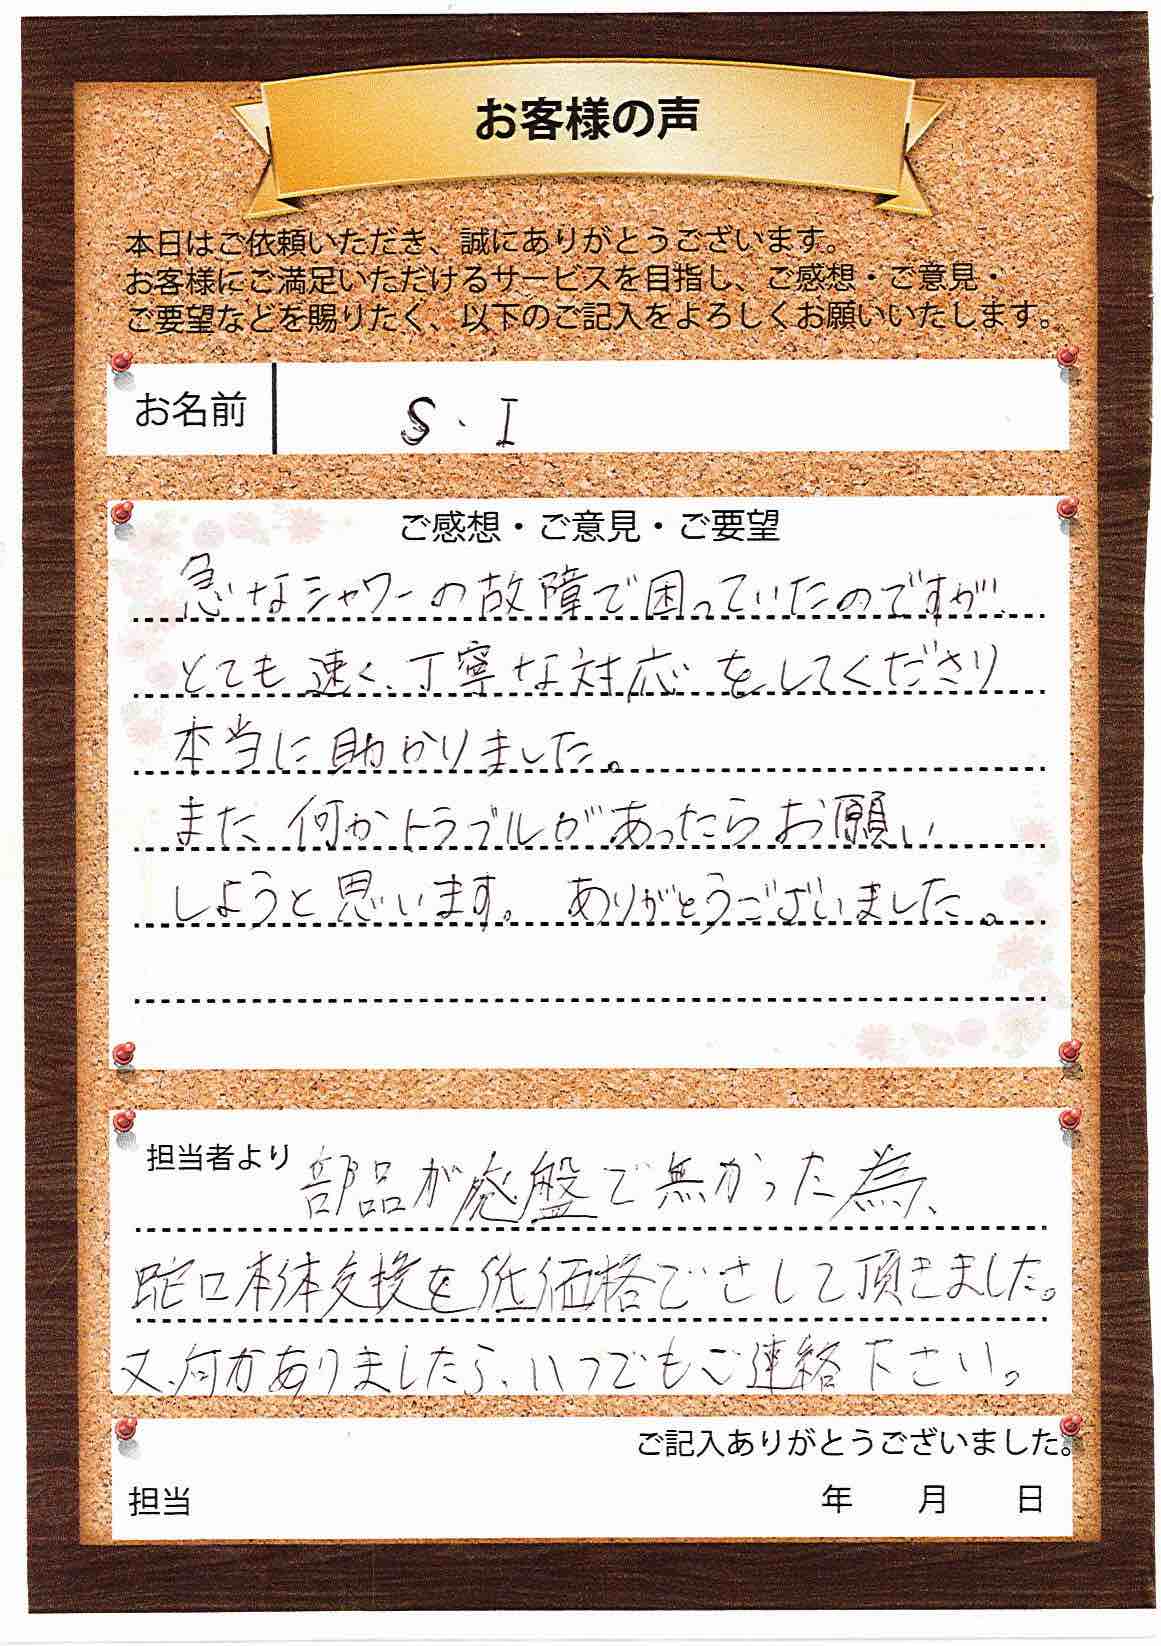 お客様の声
本日はご依頼いただき、誠にありがとうございます。
お客様にご満足いただけるサービスを目指し、ご感想・ご意見・
ご要望などを賜りたく、以下のご記入をよろしくお願いいたします。
お名前 S.I
ご感想・ご意見・ご要望
急なシャワーの故障で困っていたのですが、
とても速く、丁寧な対応をしてくださり
本当に助かりました。
また、何かトラブルがあったらお願い
しようと思います。ありがとうございました。
担当者より 部品が廃盤で無かった為、
蛇口本体交換を低価格でさして頂きました。
又、何かありましたら、いつでもご連絡下さい。
ご記入ありがとうございました。
担当 年 月 日